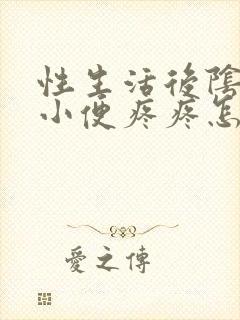 性生活後陰
小便疼疼怎
愛之傳